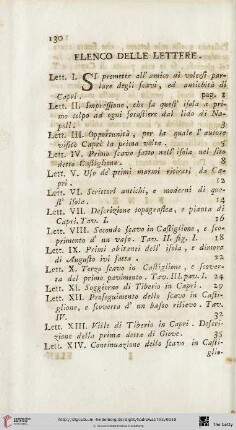 130
ELENCO DELLE LETTERE.
Lett. I. SI premette all'amico di volersi par-
lare degli scavi, ed antichità di
Capri. pag. 1
Lett. II. Impressione, che fa quest' isola a pri-
mo colpo ad ogni forastiere dal lido di Na-
poli. 3
Lett. III. Opportunità, per la quale l'autore
visitò Capri la prima volta. 5
Lett. IV. Primo scavo fatto nell'isola nel sito
detto Castiglione. 8
Lett. V. Uso de' primi marmi ritirati da Ca-
pri. 12
Lett. VI. Scrittori antichi, e moderni di que-
st' isola. 14
Lett. VII. Descrizione topografica, e pianta di
Capri. Tav. I. 16
Lett. VIII. Secondo scavo in Castiglione, e sco-
primento d' un vaso. Tav. II. fig. I. 18
Lett. IX. Primi abitanti dell' isola, e dimora
di Augusto ivi fatta. 22
Lett. X. Terzo scavo in Castiglione, e scover-
ta del primo pavimento. Tav. III. pav. I. 24
Lett. XI. Soggiorno di Tiberio in Capri. 29
Lett. XII. Proseguimento dello scavo in Casti-
glione, e scoverta d' un basso rilievo. Tav.
IV. 32
Lett. XIII. Ville di Tiberio in Capri. Descri-
zione della prima detta di Giove. 35
Lett. XIV. Continuazione dello scavo in Casti-
glio-